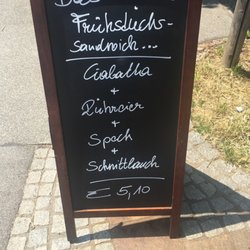 Das
Frühstücks-
sandwich...
Ciabatta
+
Rühreier
+
Speck
+
Schnittlauch
€ 5,10